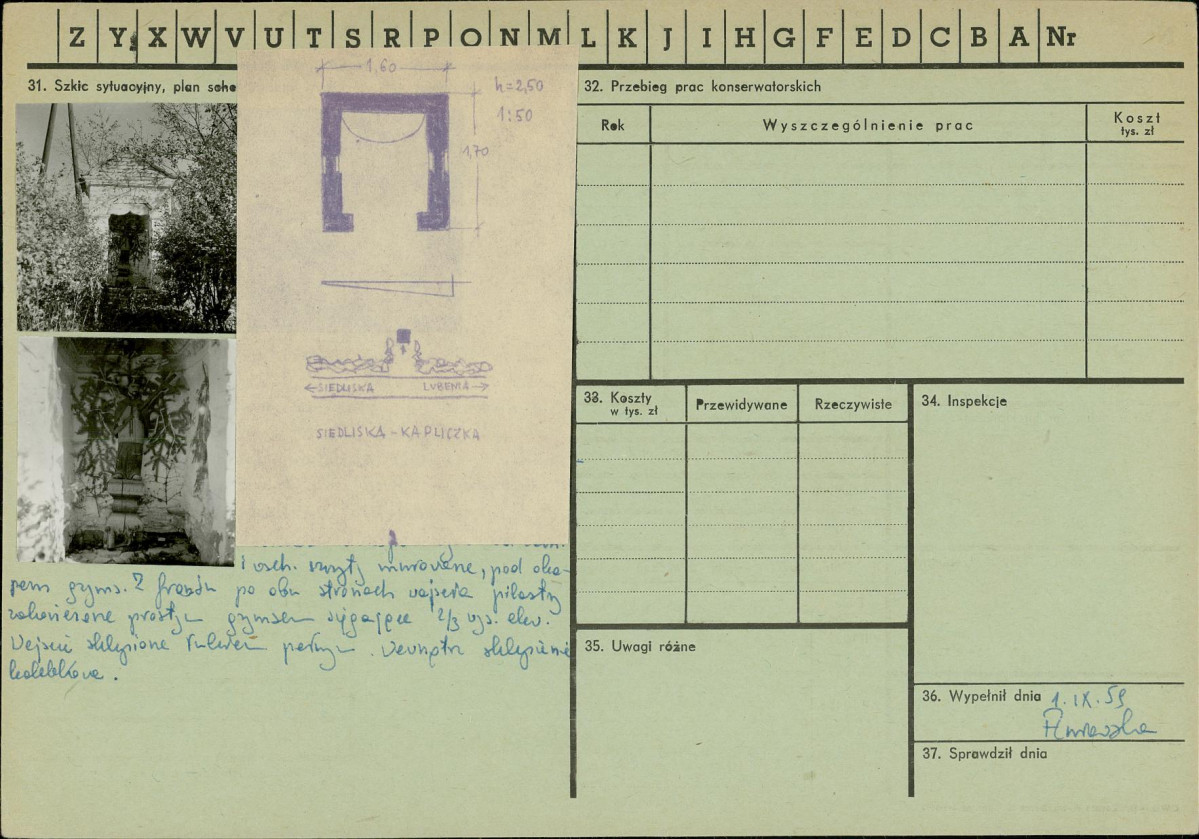 Z Y X W V U T S R P O N M L K J I H G F E D C B A Nr
31. Szkic sytuacyjny, plan sche
1,60
h=2,50
1:50
1,70
← SIEDLISKA LUBENIA →
SIEDLISKA - KAPLICZKA
i wsch. szczyty murowane, pod oka-
pem gzyms. Z frontu po obu stronach wejścia pilastry
zakończone prostym gzymsem sięgające 2/3 wys. elew.
Wejście sklepione łukiem pełnym. Wewnątrz sklepienie
kolebkowe.
32. Przebieg prac konserwatorskich
Rok Wyszczególnienie prac Koszt
tys. zł
33. Koszty
w tys. zł
Przewidywane Rzeczywiste
34. Inspekcje
35. Uwagi różne
36. Wypełnił dnia 1.IX.59
37. Sprawdził dnia